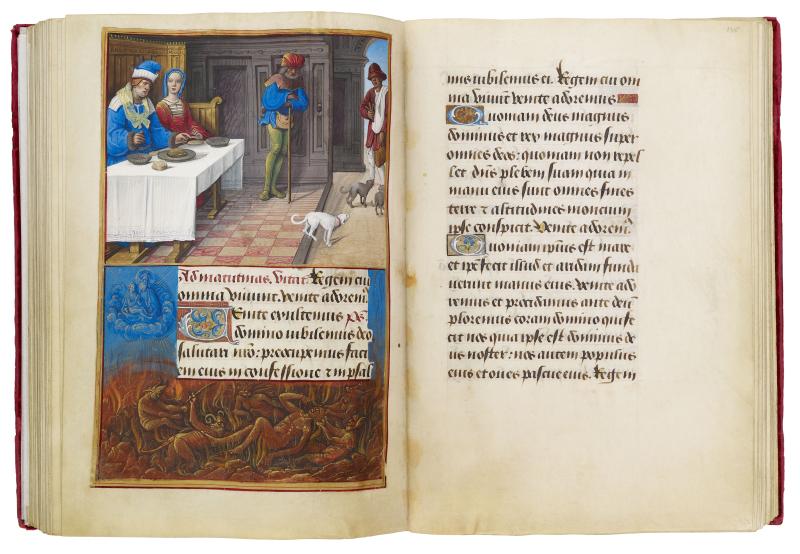 Ad matutinas. Regem cui
omnia viuunt. venite adorem
Venite exultemus ps
domino iubilemus deo
salutari nr̄o: preocupemus faci
em eius in confessione ⁊ in psal
mis iubilemus ei. Regem cui om
nia viuunt venite adoremus
Quoniam deus magnus
dominus et rex magnus super
omnes deos: quoniam non repel
let dn̄s plebem suam quia in
manu eius sunt omnes fines
terre ⁊ altitudines moncium
ipse conspicit. Venite adorem
Quoniam ip̄ius est mare
et ipse fecit illud et aridam funda
uerunt manus eius. venite ado
remus et procidamus ante deū
ploremus coram domino qui fe
cit nos quia ipse est dominus de
us noster: nos autem populus
eius et oues pascue eius. Regem